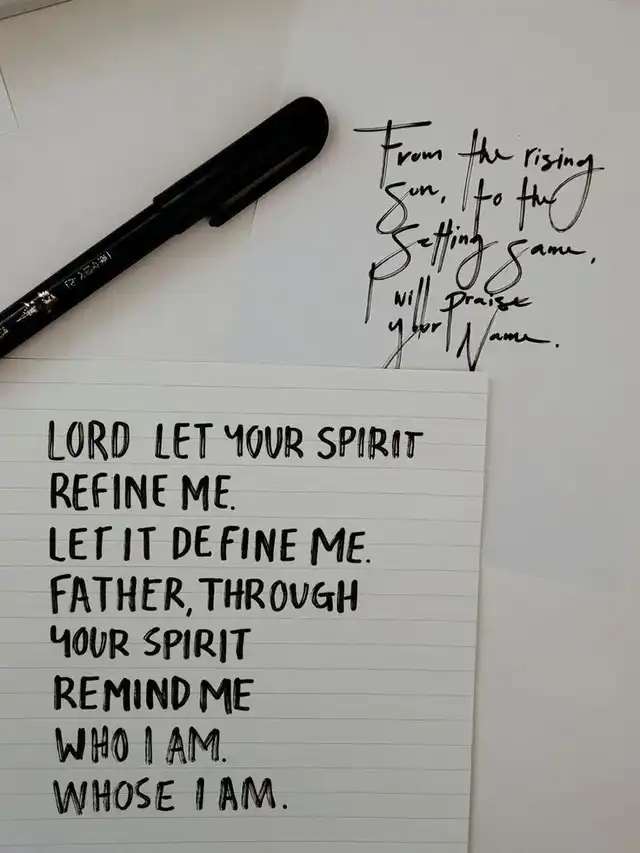 From the rising
Sun, to the
Setting Same,
I will praise
your Name.
LORD LET YOUR SPIRIT
REFINE ME.
LET IT DEFINE ME.
FATHER, THROUGH
YOUR SPIRIT
REMIND ME
WHO I AM.
WHOSE I AM.